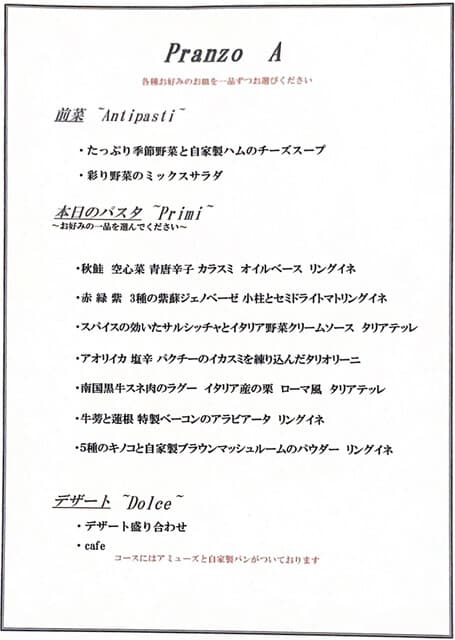 Pranzo A
各種お好みのお皿を一品ずつお選びください
前菜 ~Antipasti~
・たっぷり季節野菜と自家製ハムのチーズスープ
・彩り野菜のミックスサラダ
本日のパスタ ~Primi~
～お好みの一品を選んでください～
・秋鮭 空心菜 青唐辛子 カラスミ オイルベース リングイネ
・赤 緑 紫 3種の紫蘇ジェノベーゼ 小柱とセミドライトマトリングイネ
・スパイスの効いたサルシッチャとイタリア野菜クリームソース タリアテッレ
・アオリイカ 塩辛 パクチーのイカスミを練り込んだタリオリーニ
・南国黒牛スネ肉のラグー イタリア産の栗 ローマ風 タリアテッレ
・牛蒡と蓮根 特製ベーコンのアラビアータ リングイネ
・5種のキノコと自家製ブラウンマッシュルームのパウダー リングイネ
デザート ~Dolce~
・デザート盛り合わせ
・cafe
コースにはアミューズと自家製パンがついております